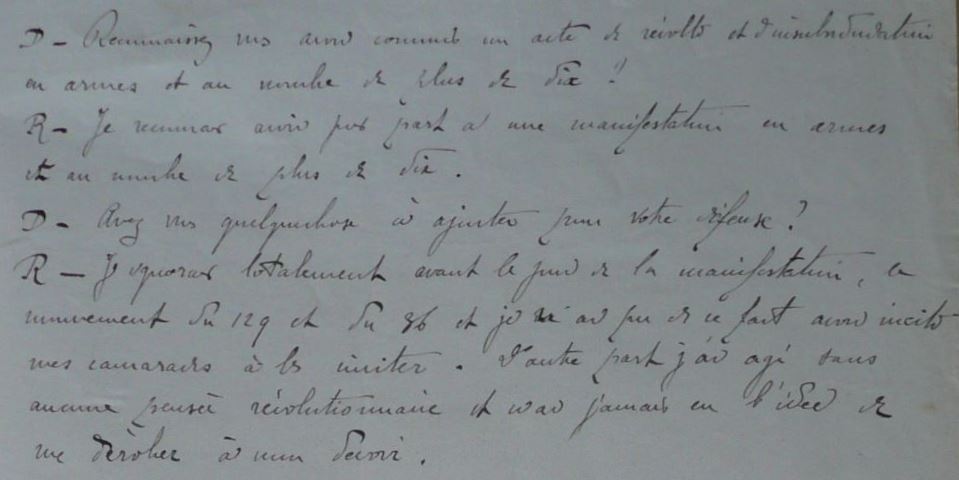 D - Reconnaissez vous avoir commis un acte de révolte et d'insubordination
en armes et au nombre de plus de dix ?
R - Je reconnais avoir pris part à une manifestation en armes
et au nombre de plus de dix.
D - Avez vous quelquechose à ajouter pour votre défense ?
R - J'ignorais totalement avant le jour de la manifestation, le
mouvement du 129 et du 36 et je n'ai pu de ce fait avoir incité
mes camarades à les imiter. D'autre part j'ai agi sans
aucune pensée révolutionnaire et n'ai jamais eu l'idée de
me dérober à mon devoir.